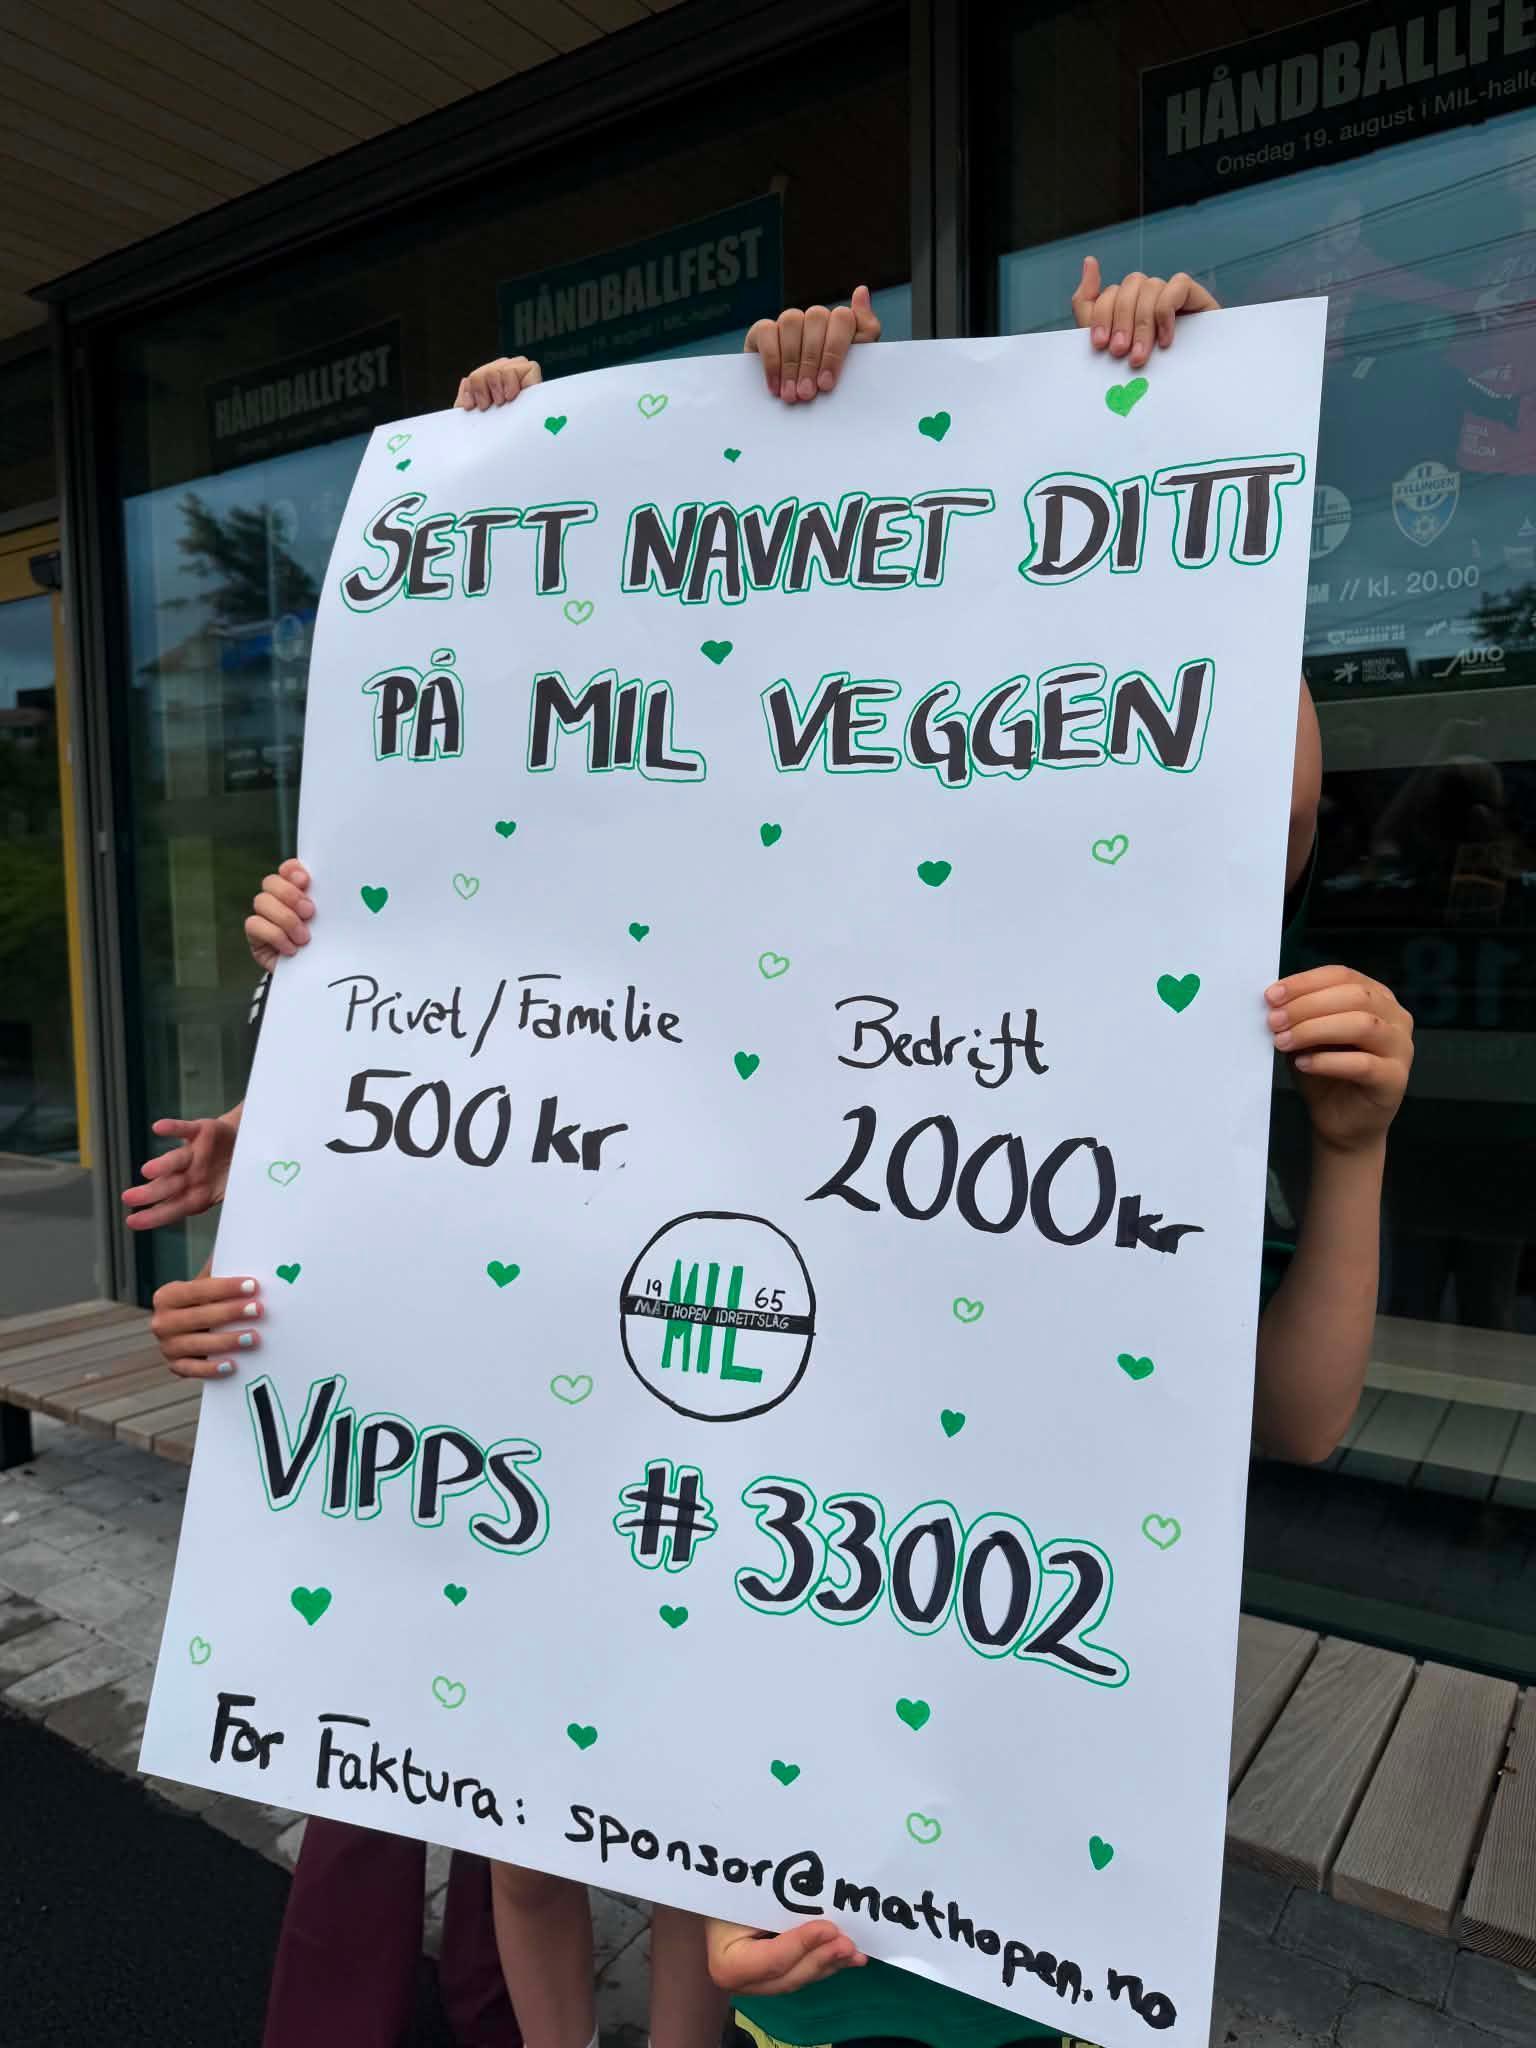 HÅNDBALLFEST
Onsdag 19. august i MIL-halle
HÅNDBALLFEST
HÅNDBALLFEST
SETT NAVNET DITT
PÅ MIL VEGGEN
FYLLINGEN
// kl. 20.00
AUTO
Privat/Familie
500 kr
Bedrift
2000 kr
MIL
19 65
MATHOPEN IDRETTSLAG
VIPPS # 33002
For Faktura: sponsor@mathopen.no